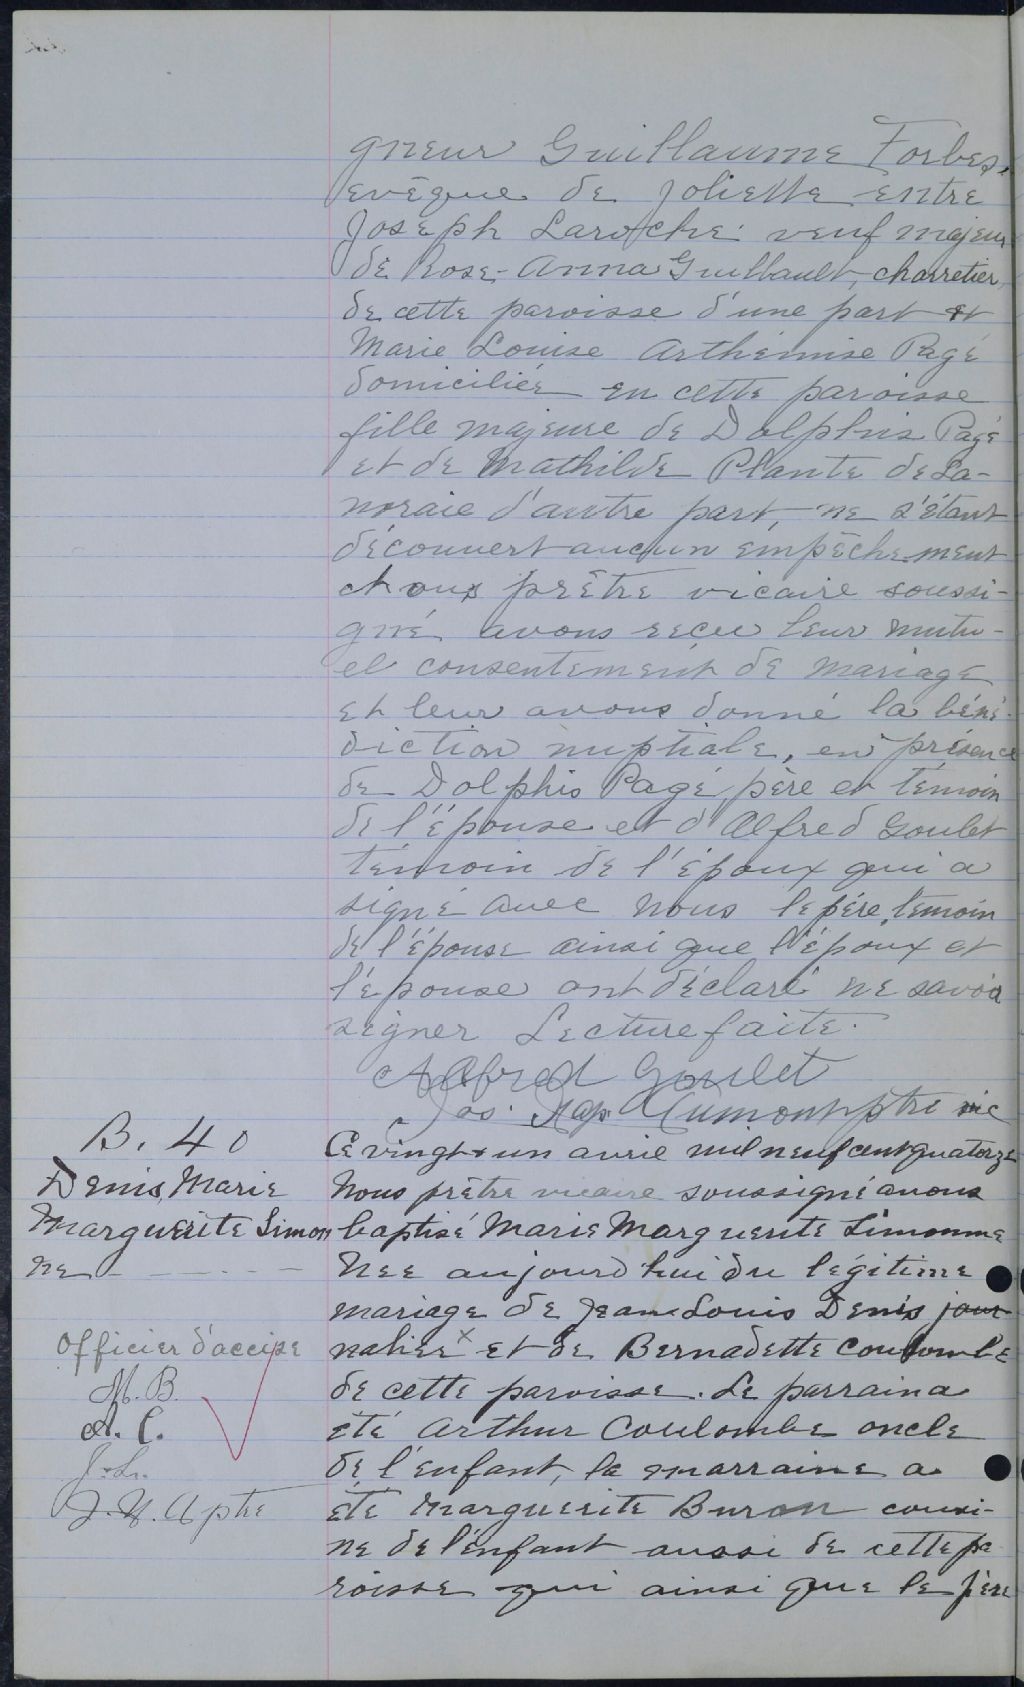 gneur Guillaume Forbes,
evêque de Joliette entre
Joseph Laroche veuf majeur
de Rose-Anna Guilbault, charretier,
de cette paroisse d'une part et
Marie Louise Arthémise Pagé
domiciliée en cette paroisse
fille majeure de Dolphis Pagé
et de Mathilde Plante de La-
noraie d'autre part, ne s'étant
découvert aucun empêchement
Nous prêtre vicaire soussi-
gné avons recu leur mutu-
el consentement de mariage
et leur avons donné la béné-
diction nuptiale, en présence
de Dolphis Pagé père et témoin
de l'épouse et d'Alfred Goulet
témoin de l'époux qui a
signé avec nous le père, témoin
de l'épouse ainsi que l'époux et
l'épouse ont déclaré ne savoir
signer Lecture faite.
Alfred Goulet
Jos. ptre vic
B. 40
Denis, Marie
Marguerite Simon
ne
Ce vingt-un avril mil neuf cent quatorze
Nous prêtre vicaire soussigné avons
baptisé Marie Marguerite Simonne
Née aujourd'hui du légitime
mariage de Jean Louis Denis jour-
nalier x et de Bernadette Coulombe
de cette paroisse. Le parrain a
été Arthur Coulombe oncle
de l'enfant, la marraine a
été Marguerite Buron cousi-
ne de l'enfant aussi de cette pa-
roisse qui ainsi que le père
Officier d'accise
M. B.
A. C.
J. L.